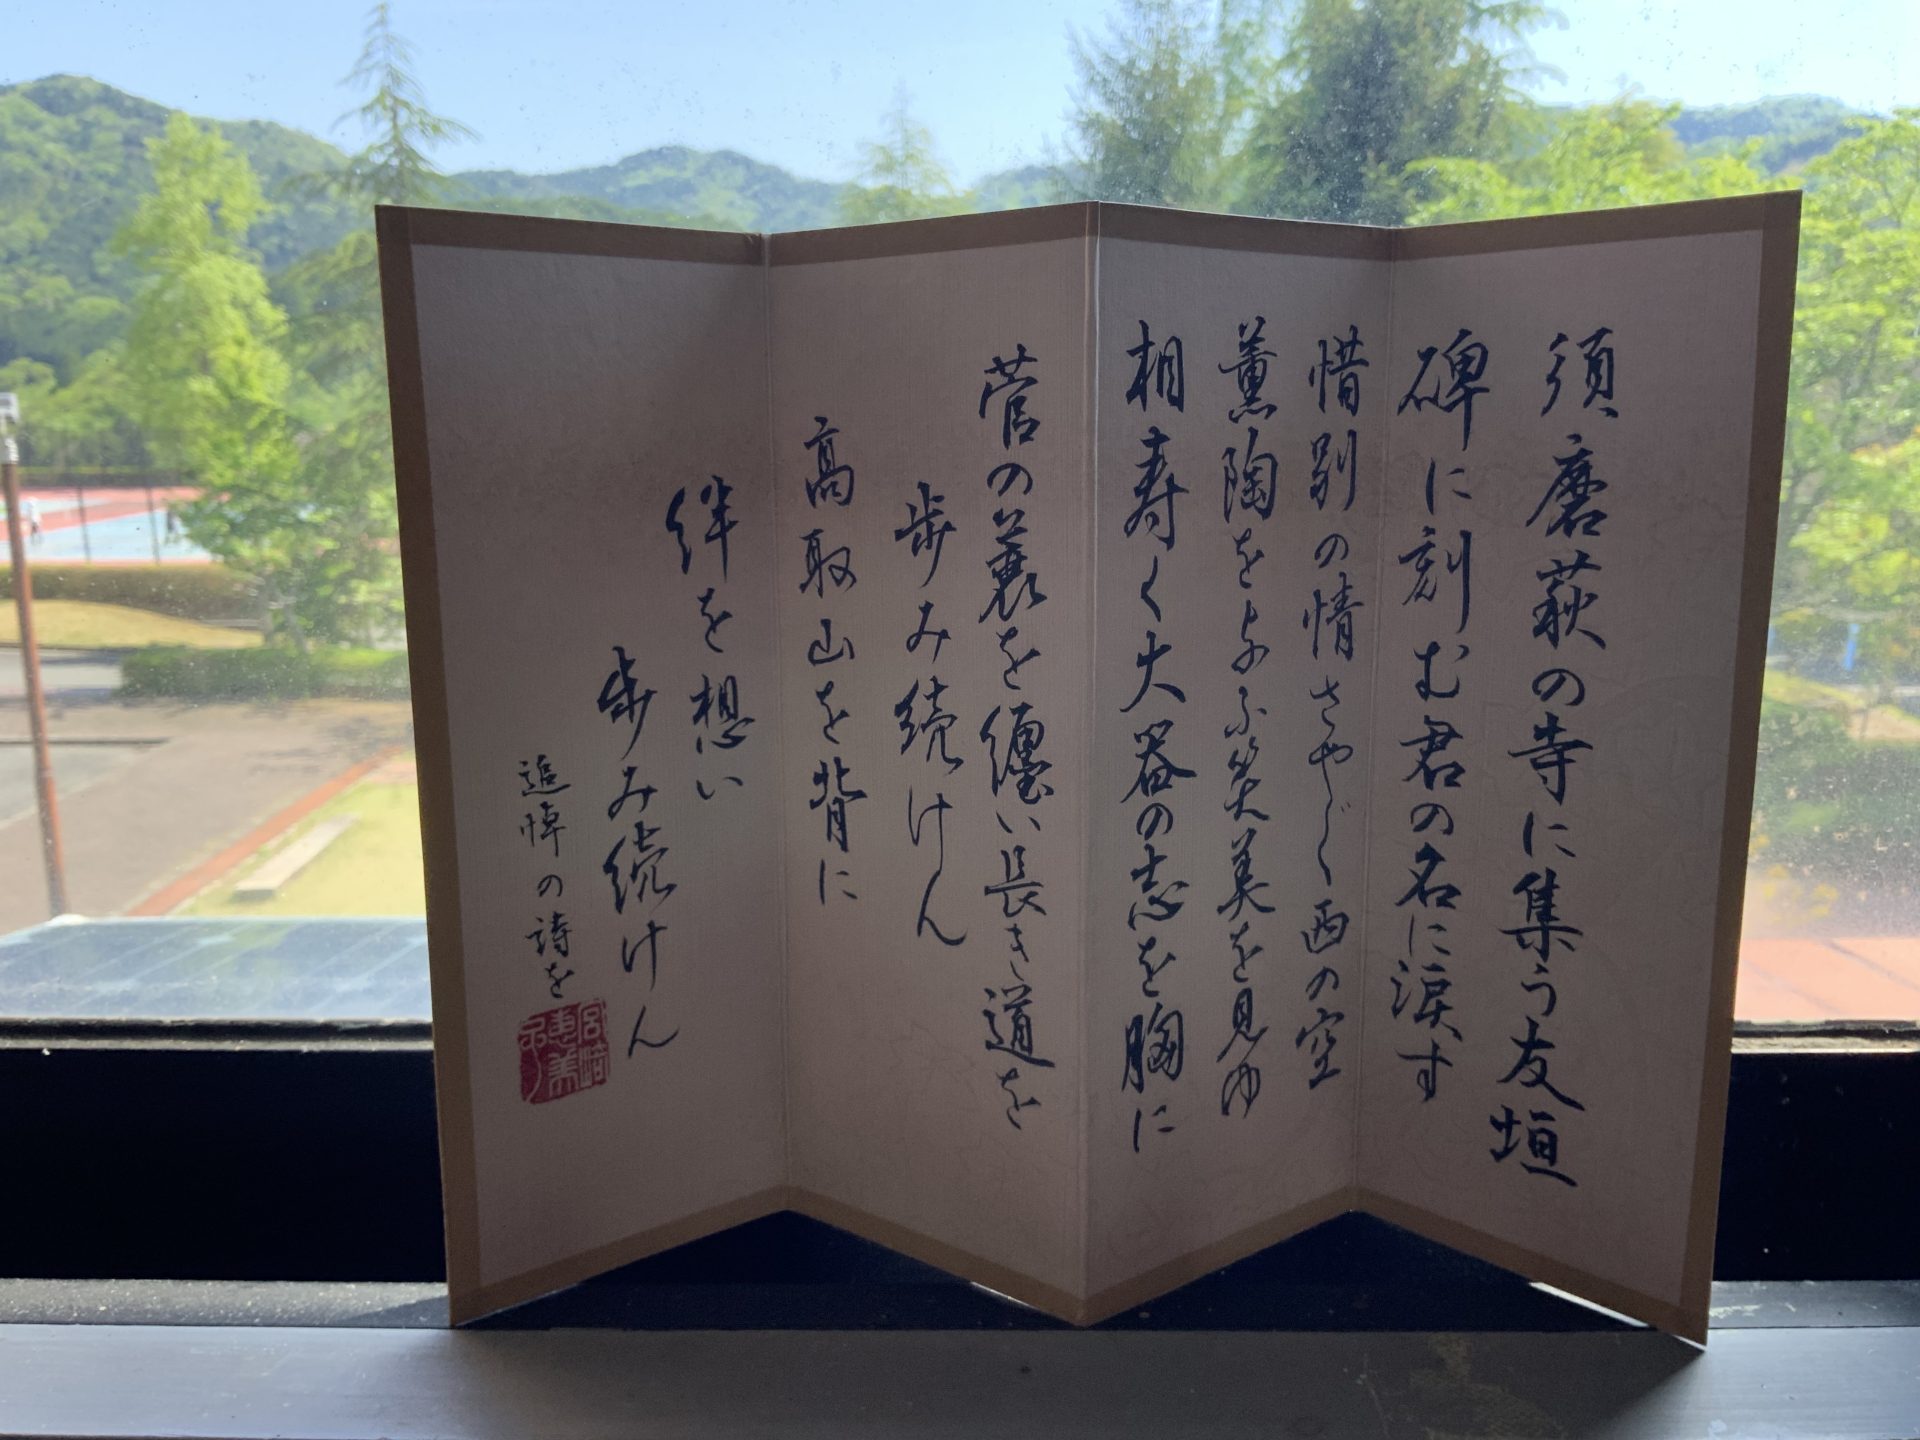 須磨萩の寺に集う友垣
碑に刻む君の名に涙す
惜別の情さやぐ西の空
薫陶を与ふ笑美を見ゆ
相寿く大器の志を胸に
菅の蓑を纏い長き道を
歩み続けん
高取山を背に
絆を想い
歩み続けん
追悼の詩を
宮崎恵美印